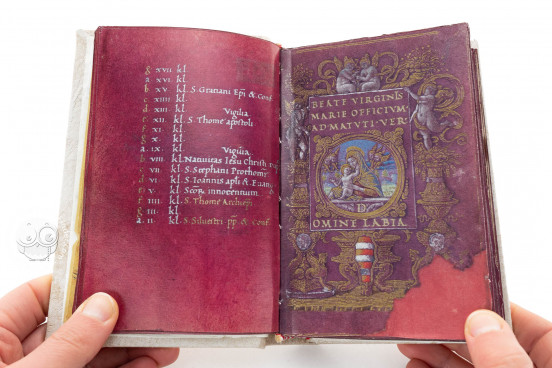 g xvii kl
a xvi kl.
b xv kl. S. Gratiani Epi & Conf
c xiiii kl.
d xiii kl. Vigilia
e xii kl. S. Thome apostoli
f xi. kl.
g x. kl.
a ix. kl. Vigilia
b viii kl. Nativitas Iesu Christi
c vii kl. S. Stephani Prothom
d vi kl. S. Ioannis apli & Euang
e v kl. Scōr innocentum
f iiii kl. S. Thome Archiepi
g iii. kl.
a ii. kl. S. Silvestri pp & conf
BEATE VIRGINIS
MARIE OFFICIVM
AD MATVTI VER
D
OMINE LABIA